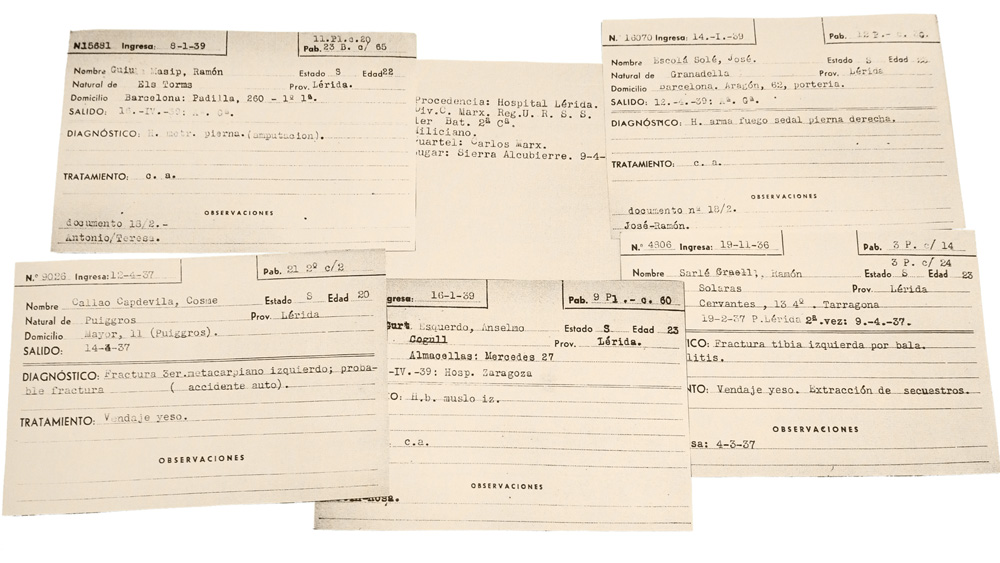 N.15681 Ingresa: 8-1-39 11.Pl.c.20
Pab. 23 B. c/ 65
Nombre Masip, Ramón Estado S Edad 22
Natural de Els Torms Prov. Lérida.
Domicilio Barcelona: Padilla, 260 - 1º 1ª.
SALIDO:
DIAGNÓSTICO: H. metr. pierna.(amputacion).
TRATAMIENTO: c. a.
OBSERVACIONES
documento 18/2.-
Antonio/Teresa.
Procedencia: Hospital Lérida.
Div.C. Marx. Reg.U. R. S. S.
1er Bat. 2ª Cª.
iliciano.
uartel: Carlos Marx.
ugar: Sierra Alcubierre. 9-4-
N.º 16070 Ingresa: 14.-I.-39 Pab.
Nombre Escolá Solé, José. Estado S Edad
Natural de Granadella Prov. Lérida
Domicilio Barcelona. Aragón, 62, porteria.
SALIDO: 12.-4.-39:
DIAGNÓSTICO: H. arma fuego sedal pierna derecha.
TRATAMIENTO: c. a.
OBSERVACIONES
documento nª 18/2.
José-Ramón.
N.º 9026 Ingresa: 12-4-37 Pab. 21 2º c/2
Nombre Callao Capdevila, Cosme Estado S Edad 20
Natural de Puiggros Prov. Lérida
Domicilio Mayor, 11 (Puiggros).
SALIDO: 14-4-37
DIAGNÓSTICO: Fractura 3er.metacarpiano izquierdo; proba-
ble fractura ( accidente auto).
TRATAMIENTO: Vendaje yeso.
OBSERVACIONES
gresa: 16-1-39 Pab. 9 Pl .- c. 60
Esquerdo, Anselmo Estado S Edad 23
Cogull Prov. Lérida.
Almacellas: Mercedes 27
-IV.-39: Hosp. Zaragoza
O: H.b. muslo iz.
c.a.
OBSERVACIONES
N.º 4306 Ingresa: 19-11-36 Pab. 3 P. c/ 14
3 P. c/ 24
Nombre Sarlé Graell, Ramón Estado S Edad 23
Solaras Prov. Lérida
Cervantes , 13 4º . Tarragona
19-2-37 P.Lérida 2ª.vez: 9.-4.-37.
ICO: Fractura tibia izquierda por bala.
litis.
NTO: Vendaje yeso. Extracción de secuestros.
OBSERVACIONES
sa: 4-3-37